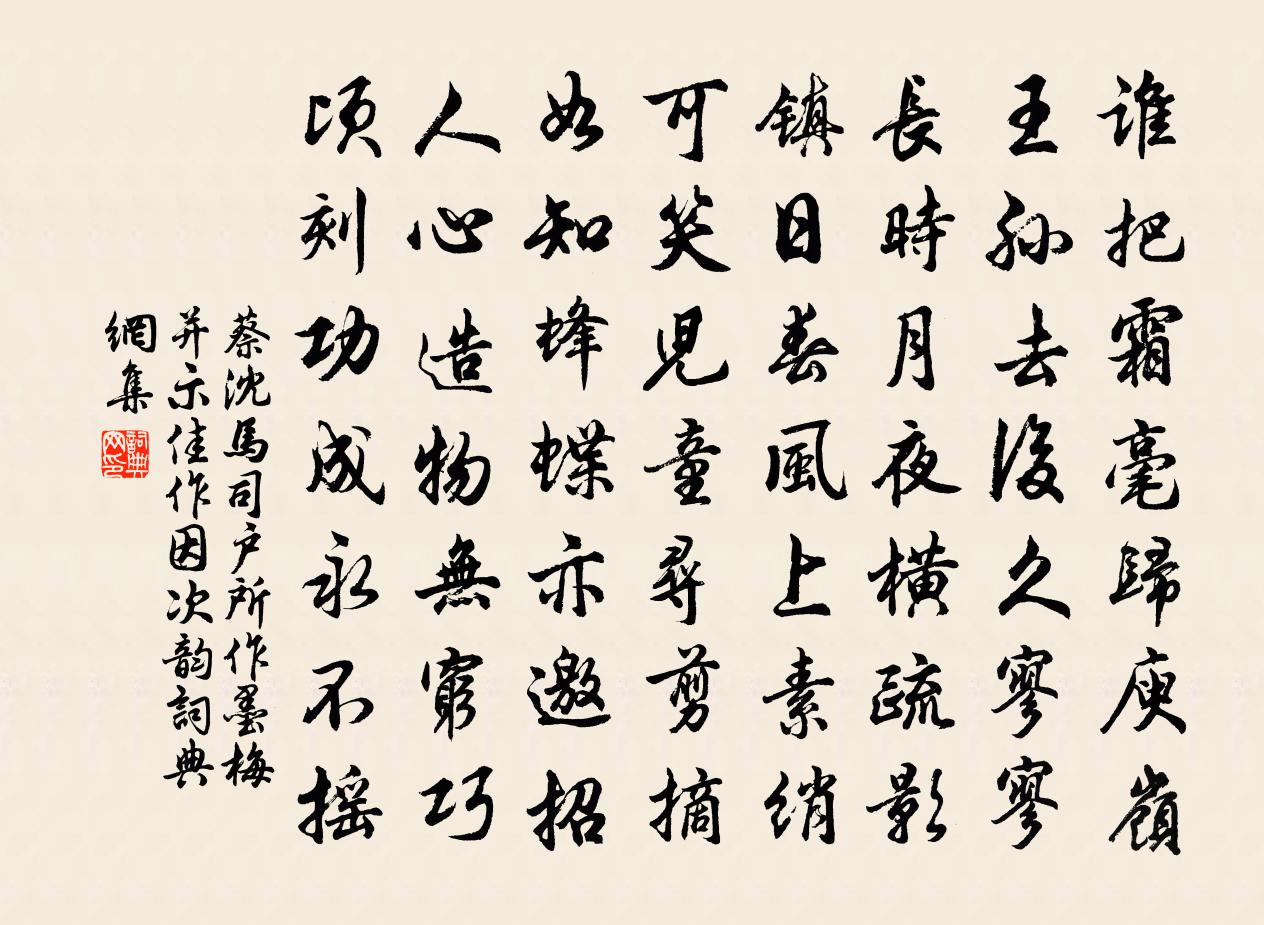 誰把霜毫歸庾嶺
王孫去後久寥寥
長時月夜橫疏影
鎮日春風上素綃
可笑兒童尋剪摘
始知蜂蝶亦邀招
人心造物無窮巧
頃刻功成永不搖
蔡沈馬司户所作墨梅
并示佳作因次韵詞典
網集
詞典網印